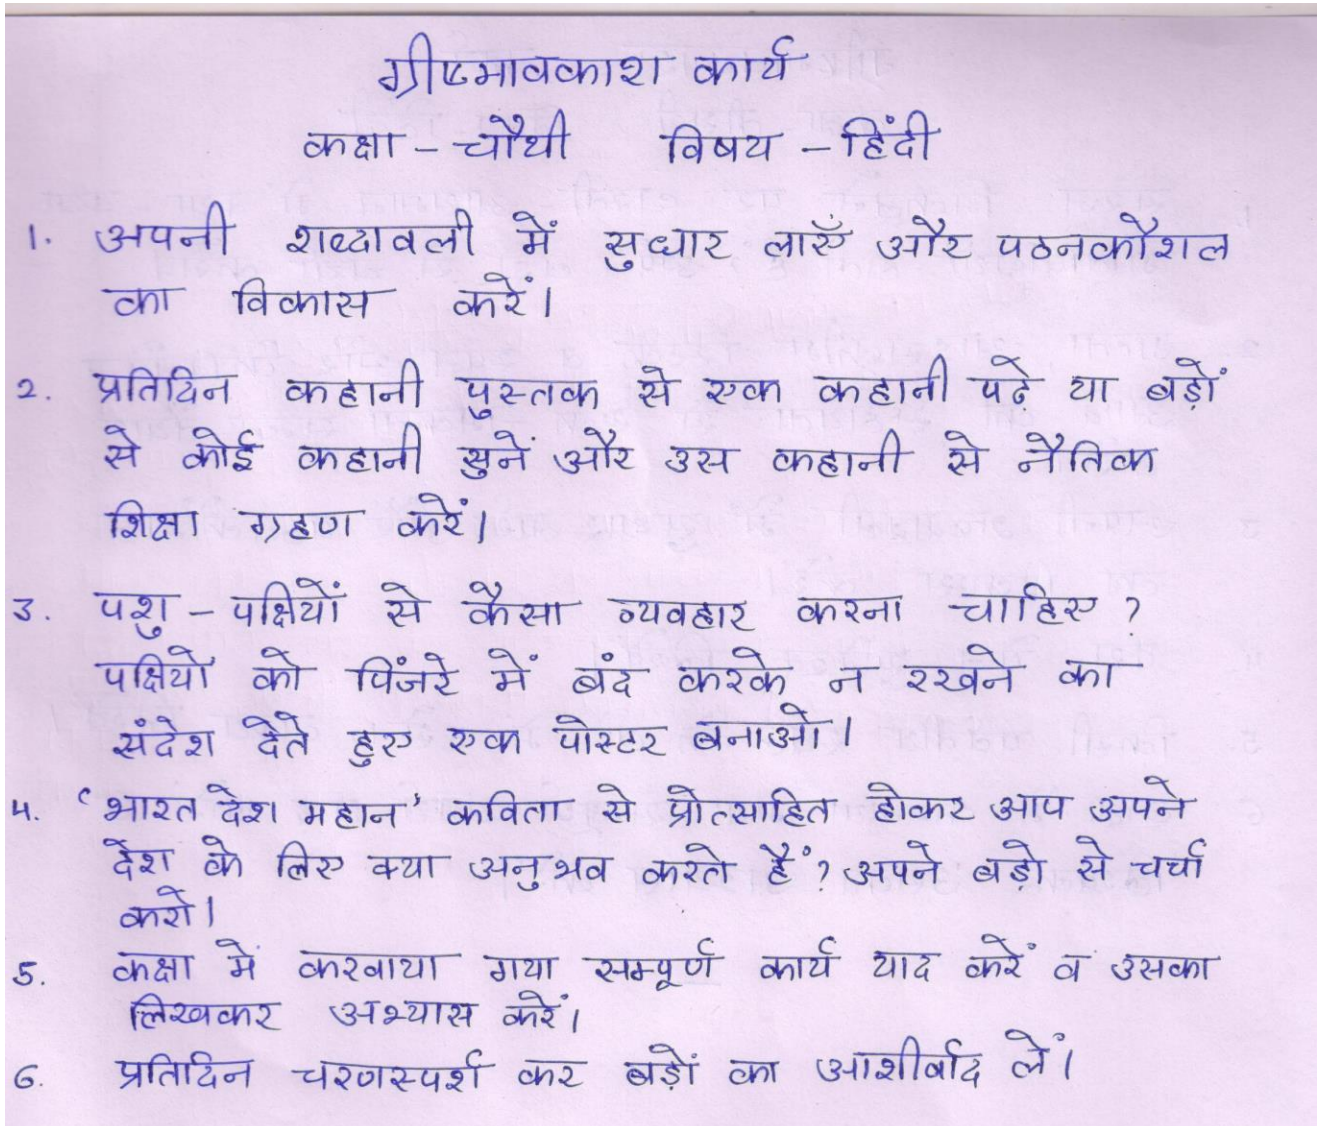 ग्रीष्मावकाश कार्य
कक्षा - चौथी विषय - हिंदी
1. अपनी शब्दावली में सुधार लाएँ और पठनकौशल
का विकास करें।
2. प्रतिदिन कहानी पुस्तक से एक कहानी पढ़े या बड़ों
से कोई कहानी सुनें और उस कहानी से नैतिक
शिक्षा ग्रहण करें।
3. पशु - पक्षियों से कैसा व्यवहार करना चाहिए ?
पक्षियों को पिंजरे में बंद करके न रखने का
संदेश देते हुए एक पोस्टर बनाओ।
4. 'भारत देश महान' कविता से प्रोत्साहित होकर आप अपने
देश के लिए क्या अनुभव करते हैं? अपने बड़ो से चर्चा
करो।
5. कक्षा में करवाया गया सम्पूर्ण कार्य याद करें व उसका
लिखकर अभ्यास करें।
6. प्रतिदिन चरणस्पर्श कर बड़ों का आशीर्वाद लें।